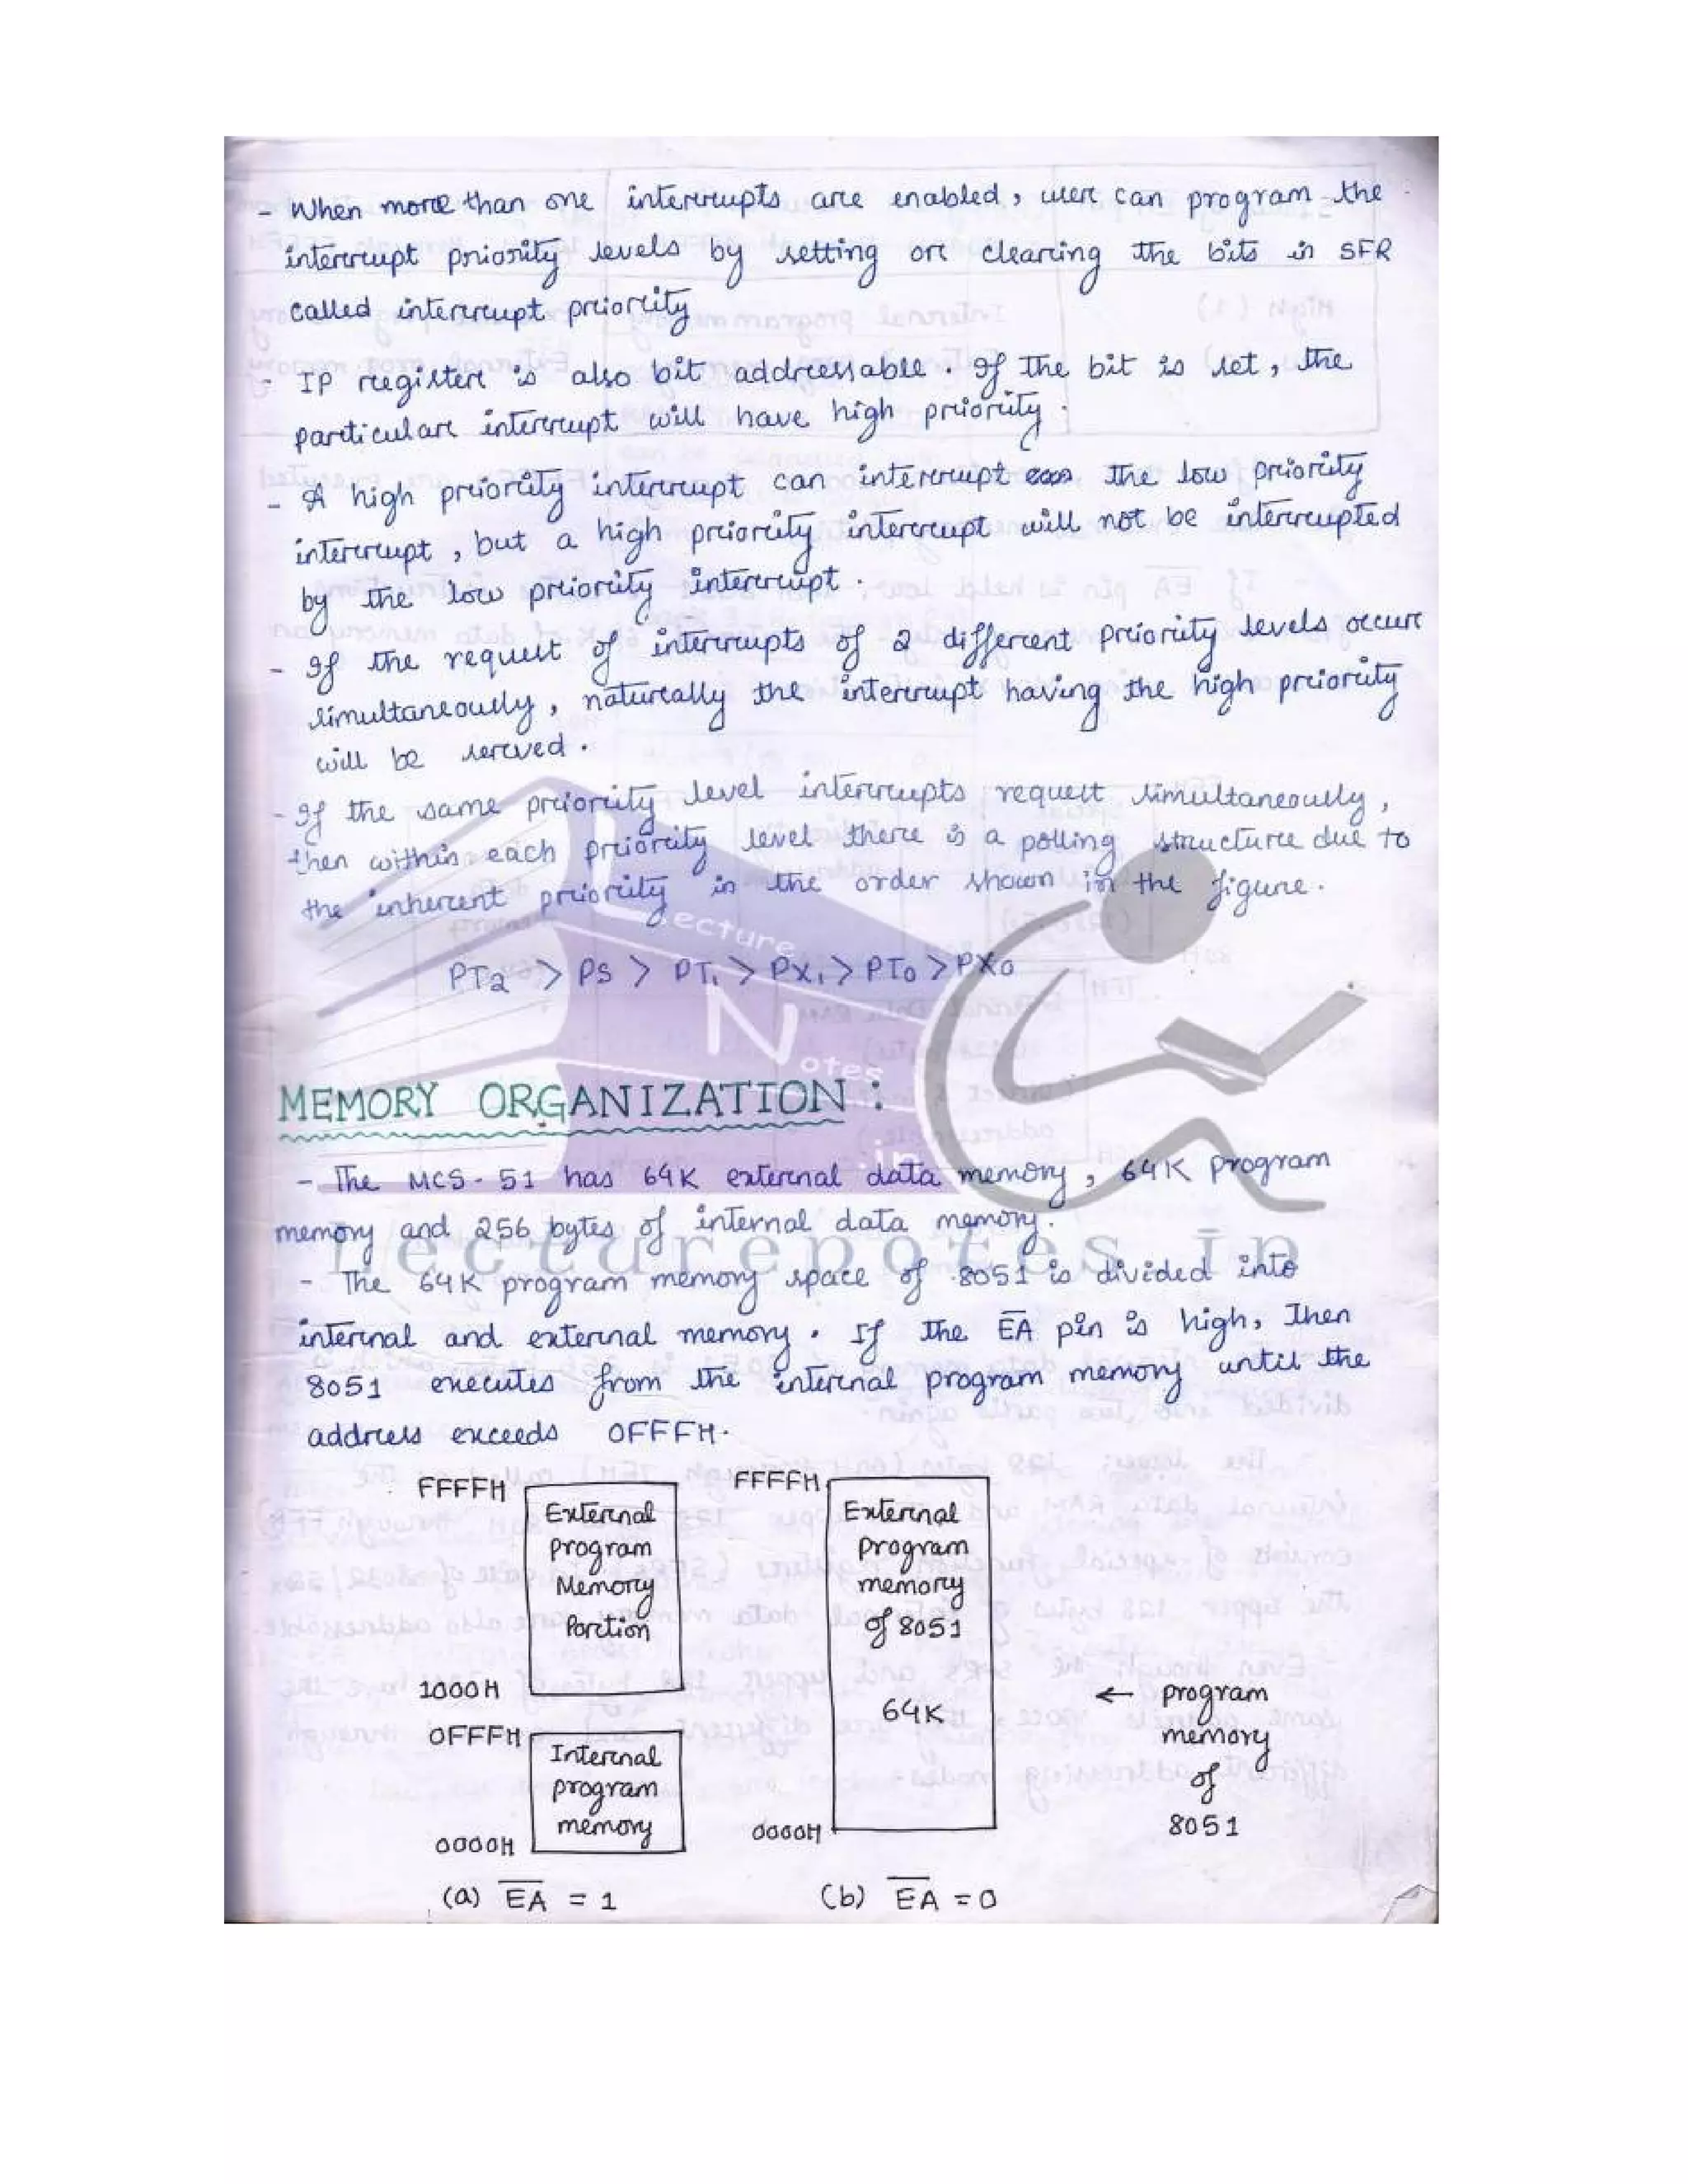 - When more than one interrupts are enabled, user can program the
interrupt priority levels by setting or clearing the bits in SFR
called interrupt priority
- IP register is also bit addressable. If the bit is set, the
particular interrupt will have high priority.
- A high priority interrupt can interrupt the low priority
interrupt, but a high priority interrupt will not be interrupted
by the low priority interrupt.
- If the request of interrupts of 2 different priority levels occur
simultaneously, naturally the interrupt having the high priority
will be served.
- If the same priority level interrupts request simultaneously,
then within each priority level there is a polling structure due to
the inherent priority in the order shown in the figure.
PT2 > PS > PT1 > PX1 > PT0 > PX0
Lecture
Notes
.in
MEMORY ORGANIZATION :
- The MCS-51 has 64K external data memory, 64K program
memory and 256 bytes of internal data memory.
Lecturenotes.in
- The 64K program memory space of 8051 is divided into
internal and external memory. If the E̅A̅ pin is high, then
8051 executes from the internal program memory until the
address exceeds 0FFFH.
FFFFH
External
program
Memory
Portion
1000H
0FFFH
Internal
program
memory
0000H
(a) E̅A̅ = 1
FFFFH
External
program
memory
of 8051
64K
0000H
(b) E̅A̅ = 0
← program
memory
of
8051